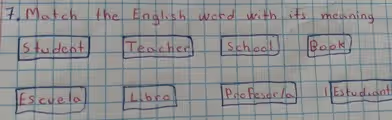 7. Match the English word with its meaning
Student Teacher School Book
Escuela Libro Profesor/a Estudiant